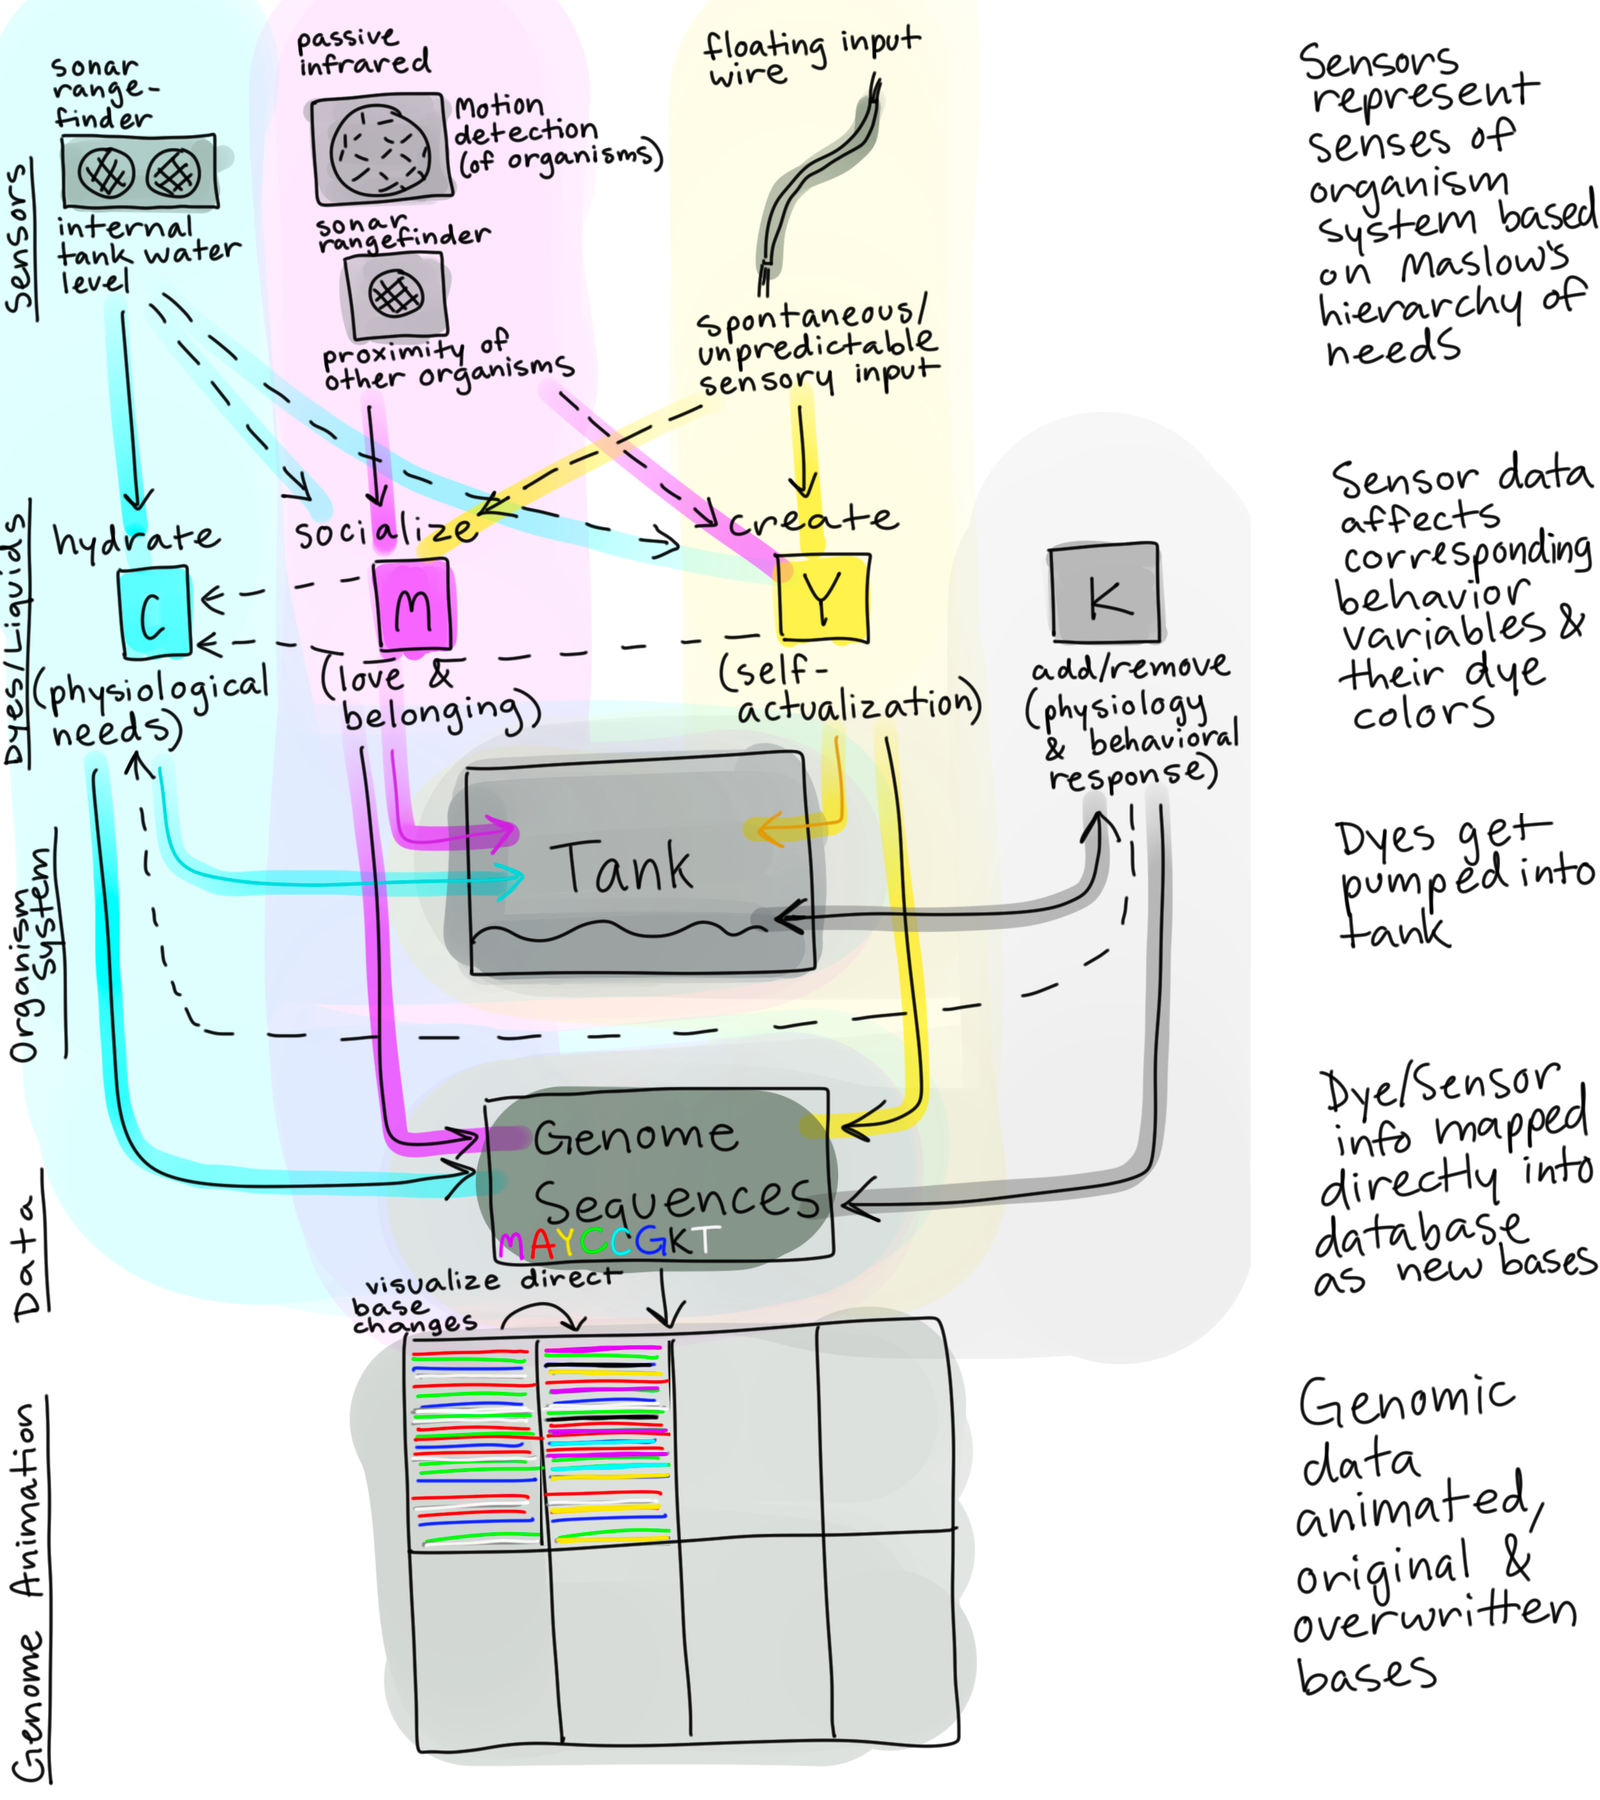 sonar
range-
finder
internal
tank water
level
passive
infrared
Motion
detection
(of organisms)
sonar
rangefinder
proximity of
other organisms
floating input
wire
spontaneous/
unpredictable
sensory input
Sensors
Sensors
represent
senses of
organism
system based
on Maslow's
hierarchy of
needs
Dyes/Liquids
hydrate
C
(physiological
needs)
socialize
M
(love &
belonging)
create
Y
(self-
actualization)
K
add/remove
(physiology
& behavioral
response)
Sensor data
affects
corresponding
behavior
variables &
their dye
colors
Organism
System
Tank
Dyes get
pumped into
tank
Data
Genome
Sequences
MAYCCGKT
Dye/Sensor
info mapped
directly into
database
as new bases
visualize direct
base
changes
Genome Animation
Genomic
data
animated,
original &
overwritten
bases